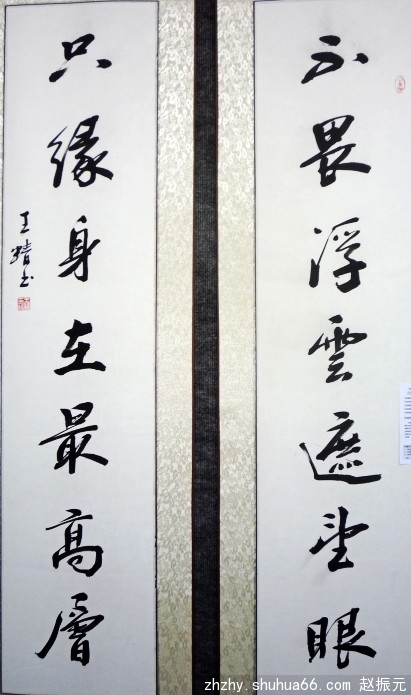 不畏浮雲遮望眼
只緣身在最高層
zhzhy.shuhua66.com 赵振元